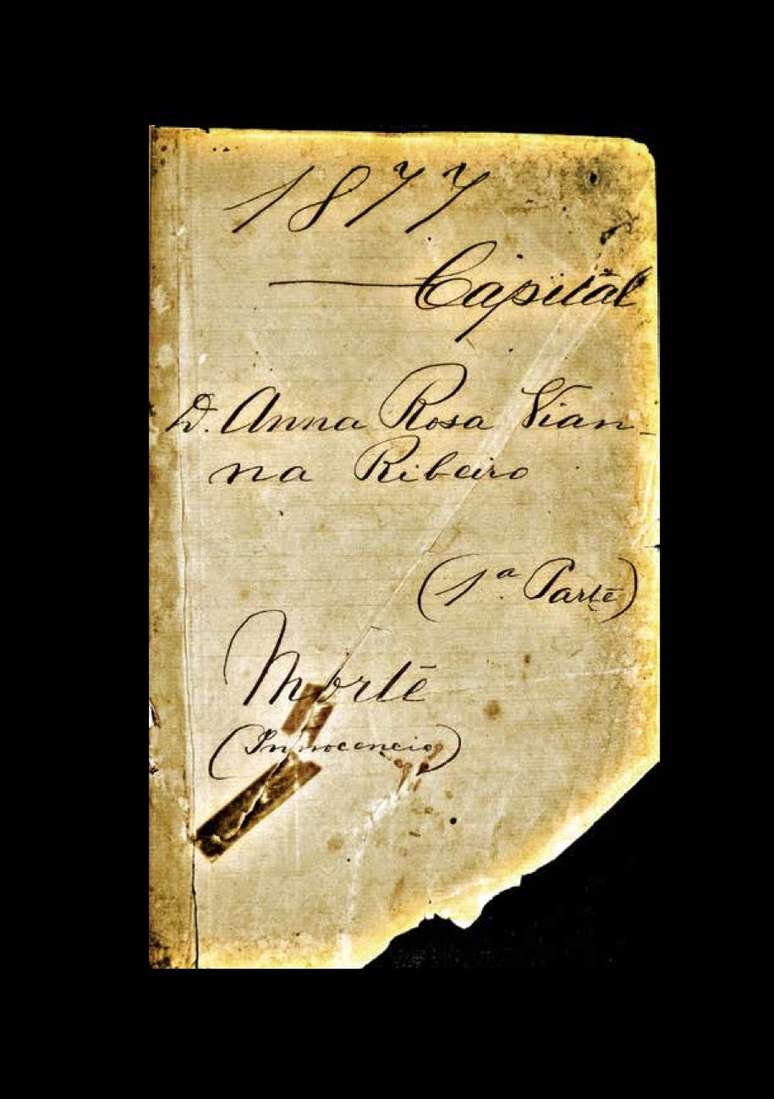 1877
Capital
D. Anna Rosa Vian-
na Ribeiro
(1.ª Parte)
Morte
(Innocencio)